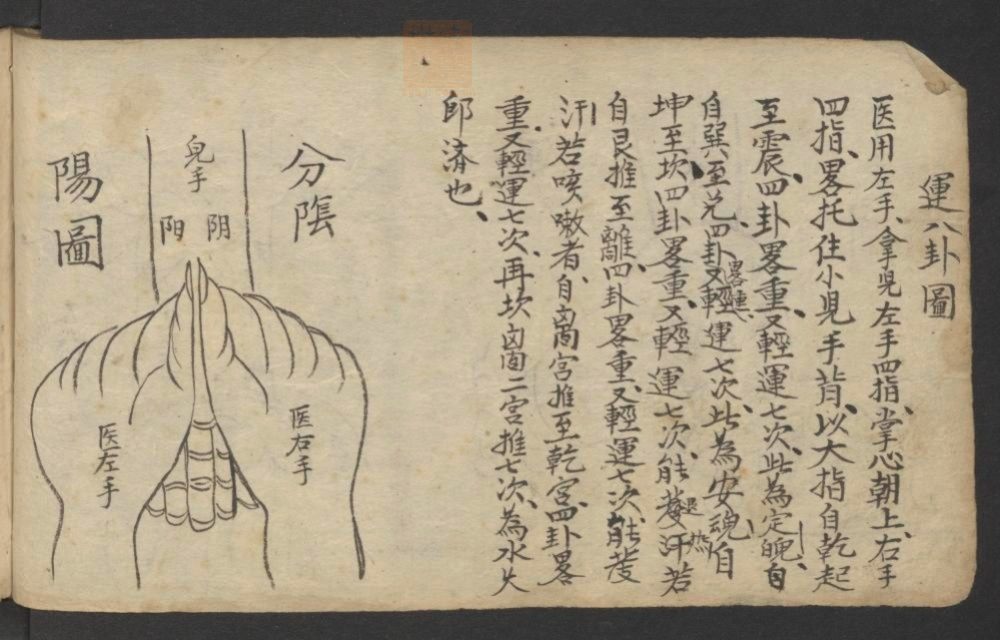 運八卦圖
医用左手、拿児左手四指、掌心朝上、右手
四指、畧托住小児手背、以大指自乾起
至震、四卦畧重、又輕運七次、此為定魄、自
自巽至兑、四卦又畧重輕運七次、此為安魂、自
坤至坎四卦畧重、又輕運七次、能發汗若
退热
自艮推至離、四卦畧重、又輕運七次、能發
汗、若咳嗽者、自离宮推至乾宮、四卦畧
重、又輕運七次、再坎离二宮推七次、為水火
即済也、
分陰
陽圖
児手
阴
阳
医右手
医左手